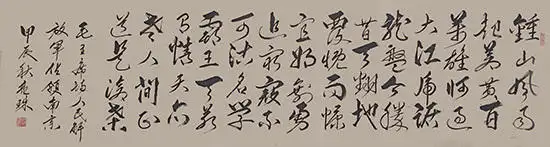 鍾山風雨
起蒼黃百
萬雄師過
大江虎踞
龍盤今勝
昔天翻地
覆慨而慷
宜將剩勇
追窮寇不
可沽名學
霸王天若
有情天亦
老人間正
道是滄桑
毛主席詩人民解
放軍佔領南京
甲辰秋珠